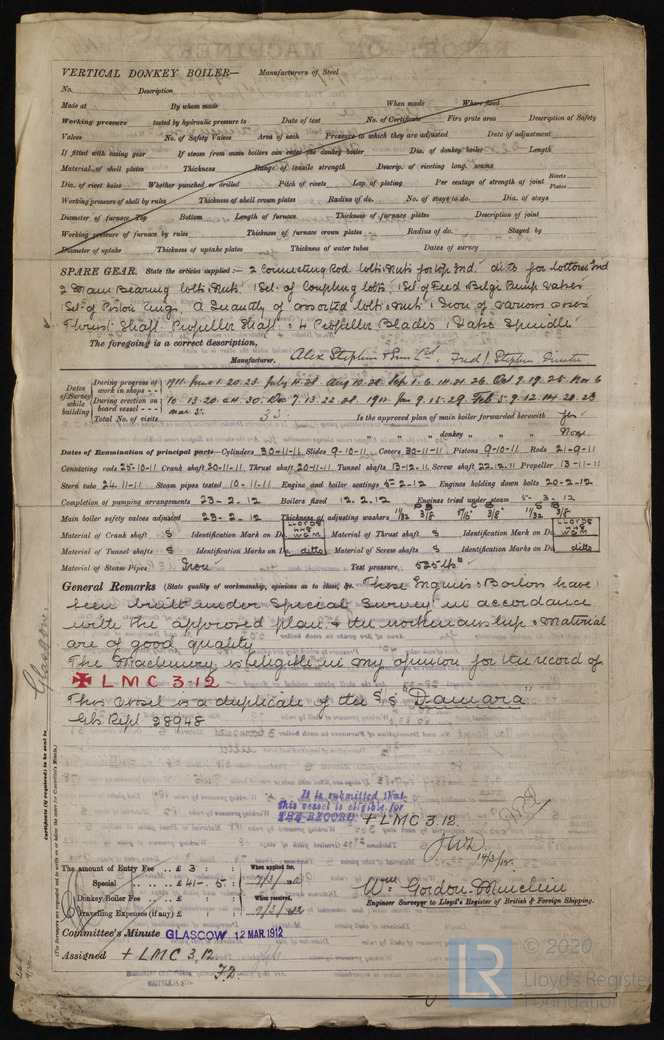 VERTICAL DONKEY BOILER— Manufacturers of Steel
No. Description
Made at By whom made When made Where fixed
Working pressure tested by hydraulic pressure to Date of test No. of Certificate Fire grate area Description of Safety
Valves No. of Safety Valves Area of each Pressure to which they are adjusted Date of adjustment
If fitted with easing gear If steam from main boilers can enter the donkey boiler Dia. of donkey boiler Length
Material of shell plates Thickness Range of tensile strength Descrip. of riveting long. seams
Dia. of rivet holes Whether punched or drilled Pitch of rivets Lap of plating Per centage of strength of joint Rivets Plates
Working pressure of shell by rules Thickness of shell crown plates Radius of do. No. of stays to do. Dia. of stays
Diameter of furnace Top Bottom Length of furnace Thickness of furnace plates Description of joint
Working pressure of furnace by rules Thickness of furnace crown plates Radius of do. Stayed by
Diameter of uptake Thickness of uptake plates Thickness of water tubes Dates of survey
SPARE GEAR. State the articles supplied:— 2 Connecting Rod bolts & Nuts for top End ditto for bottom End
2 Main Bearing bolts & Nuts 1 Set of Coupling bolts 1 Set of Feed & Bilge Pump Valves
1 Set of Piston rings. A Quantity of assorted bolts & Nuts Iron of various sizes
Thrust Shaft Propeller Shaft 4 Propeller Blades 1 Valve Spindle
The foregoing is a correct description,
Alex Stephen & Sons Ltd, Fred J. Stephen Director Manufacturer.
Dates of Survey while building
During progress of work in shops - - 1911 June 1. 20. 23. July 4. 28. Aug 10. 28. Sep 1. 6. 14. 21. 26. Oct 9. 19. 25. Nov 6
During erection on board vessel - - - 10. 13. 20. 24. 30. Dec 7. 13. 22. 28. 1912 Jan 9. 15. 29. Feb 5. 9. 12. 14. 20. 23
Mar 5.
Total No. of visits 35. Is the approved plan of main boiler forwarded herewith Yes
" " " donkey " " " None
Dates of Examination of principal parts—Cylinders 30-11-11 Slides 9-10-11. Covers 30-11-11 Pistons 9-10-11 Rods 21-9-11
Connecting rods 25-10-11 Crank shaft 20-11-11 Thrust shaft 20-11-11 Tunnel shafts 13-12-11 Screw shaft 22.12.11 Propeller 13-11-11
Stern tube 24.11-11 Steam pipes tested 10-11-11 Engine and boiler seatings 5-2-12 Engines holding down bolts 20-2-12
Completion of pumping arrangements 23-2-12 Boilers fixed 12.2-12 Engines tried under steam 5-3-12
Main boiler safety valves adjusted 23-2-12 Thickness of adjusting washers 11/32 3/8 5/16 3/8 11/32 3/8
Material of Crank shaft S Identification Mark on Do. LLOYDS WGM Material of Thrust shaft S Identification Mark on Do. LLOYDS WGM
Material of Tunnel shafts S Identification Marks on Do. ditto Material of Screw shafts S Identification Marks on Do. ditto
Material of Steam Pipes Iron Test pressure 525 lbs
General Remarks (State quality of workmanship, opinions as to class, &c. These Engines & Boilers have
been built under Special Survey in accordance
with the approved plans & the workmanship & material
are of good quality
The Machinery is eligible in my opinion for the record of
✠ LMC 3-12
This vessel is a duplicate of the SS "Damara"
Gls Rept 38948
Glasgow.
Certificate (if required) to be sent to
(The Surveyors are requested not to write on or below the space for Committee's Minute.)
It is submitted that
this vessel is eligible for
THE RECORD + LMC 3.12.
JWD 14/3/12.
The amount of Entry Fee .. £ 3 : :
Special .. .. .. £ 41 - 5 :
Donkey Boiler Fee .. .. £ : :
Travelling Expenses (if any) £ : :
When applied for,
7/3/12
When received,
9/3/12
Wm Gordon-Muirhein
Engineer Surveyor to Lloyd's Register of British & Foreign Shipping.
Committee's Minute GLASGOW 12 MAR.1912
Assigned + LMC 3,12
F.D.
LR
© 2020
Lloyd's Register
Foundation